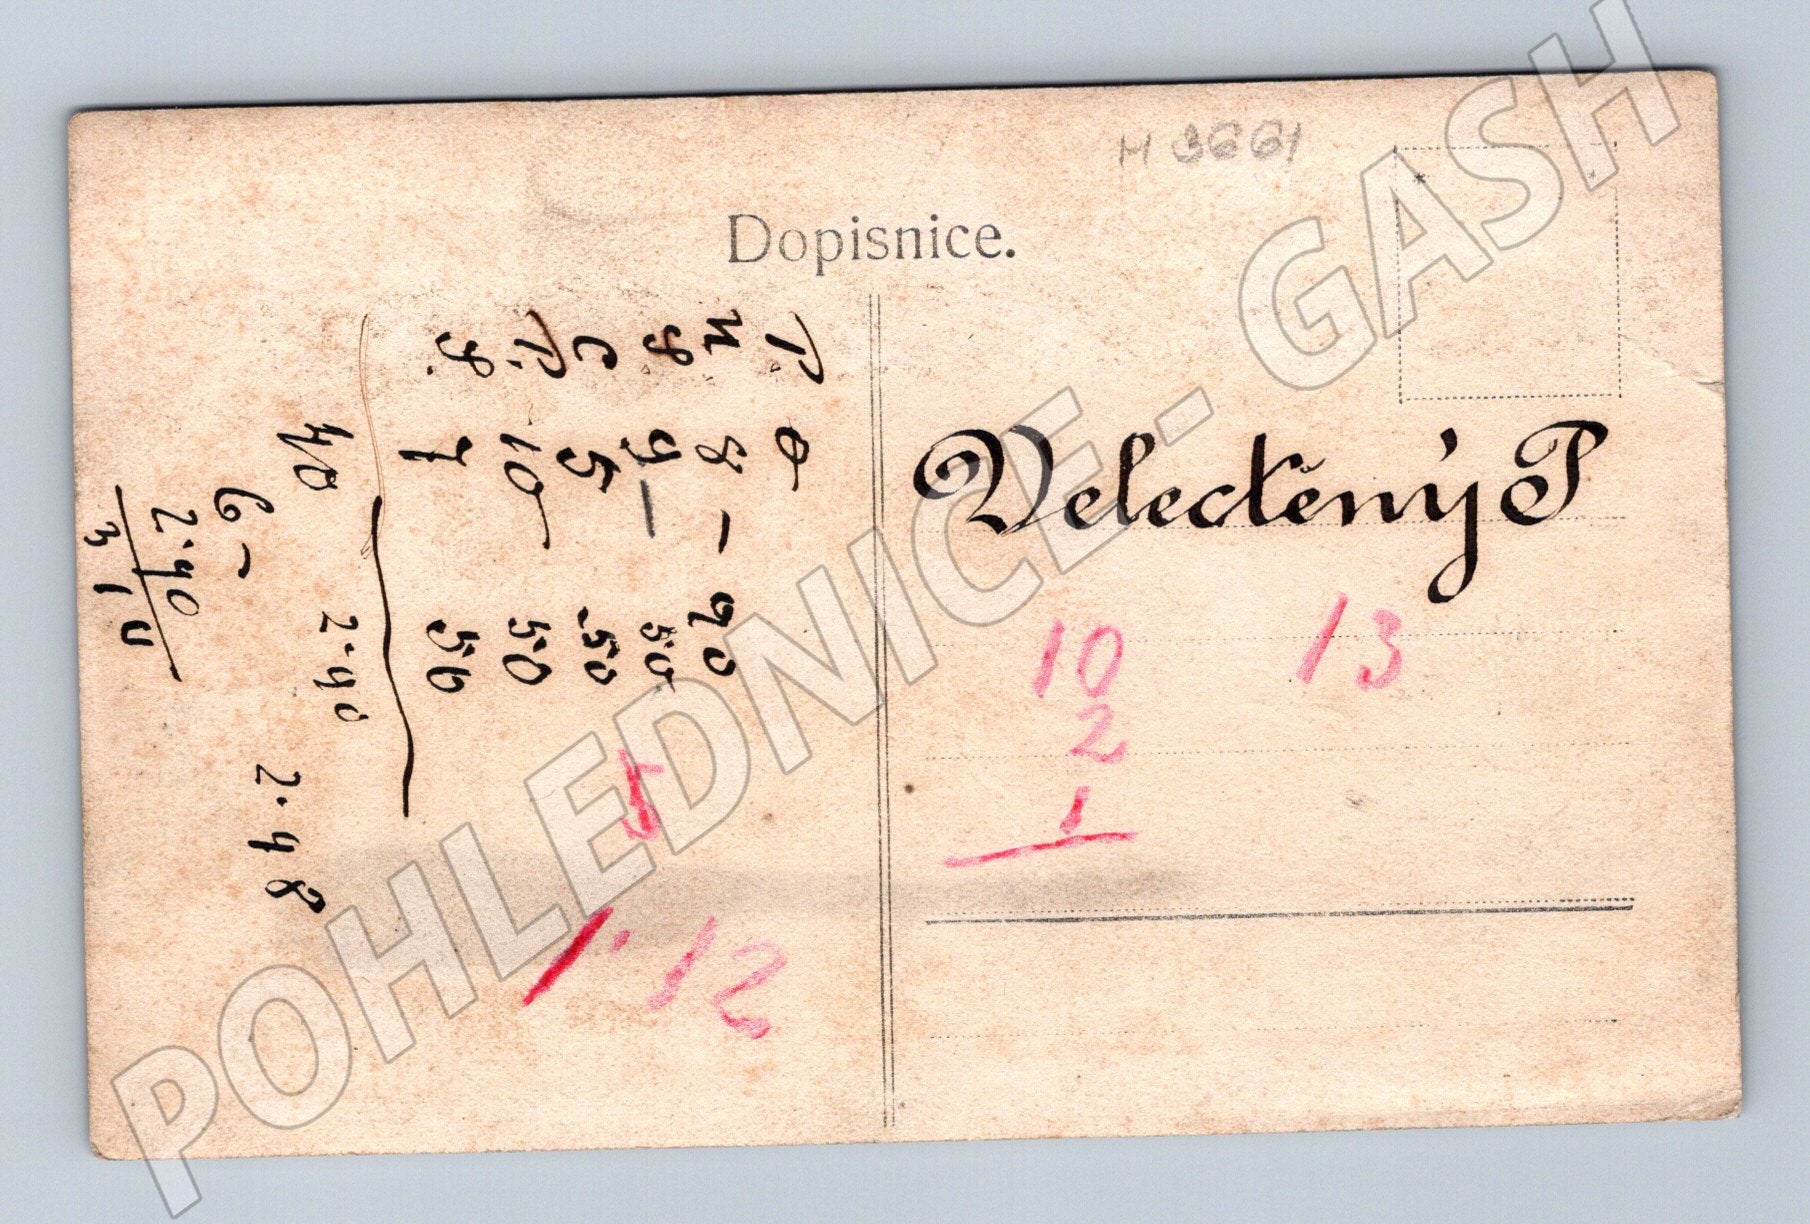 H 3661
Dopisnice.
Velectěný P
10
2
1
13
5
1. 12
T. 0
u 8 – 90
8 9 – 50
C 5 50
P. 10 – 50
8. 7 50
40 2·40
6 – 2·48
2·40
POHLEDNICE - GASH